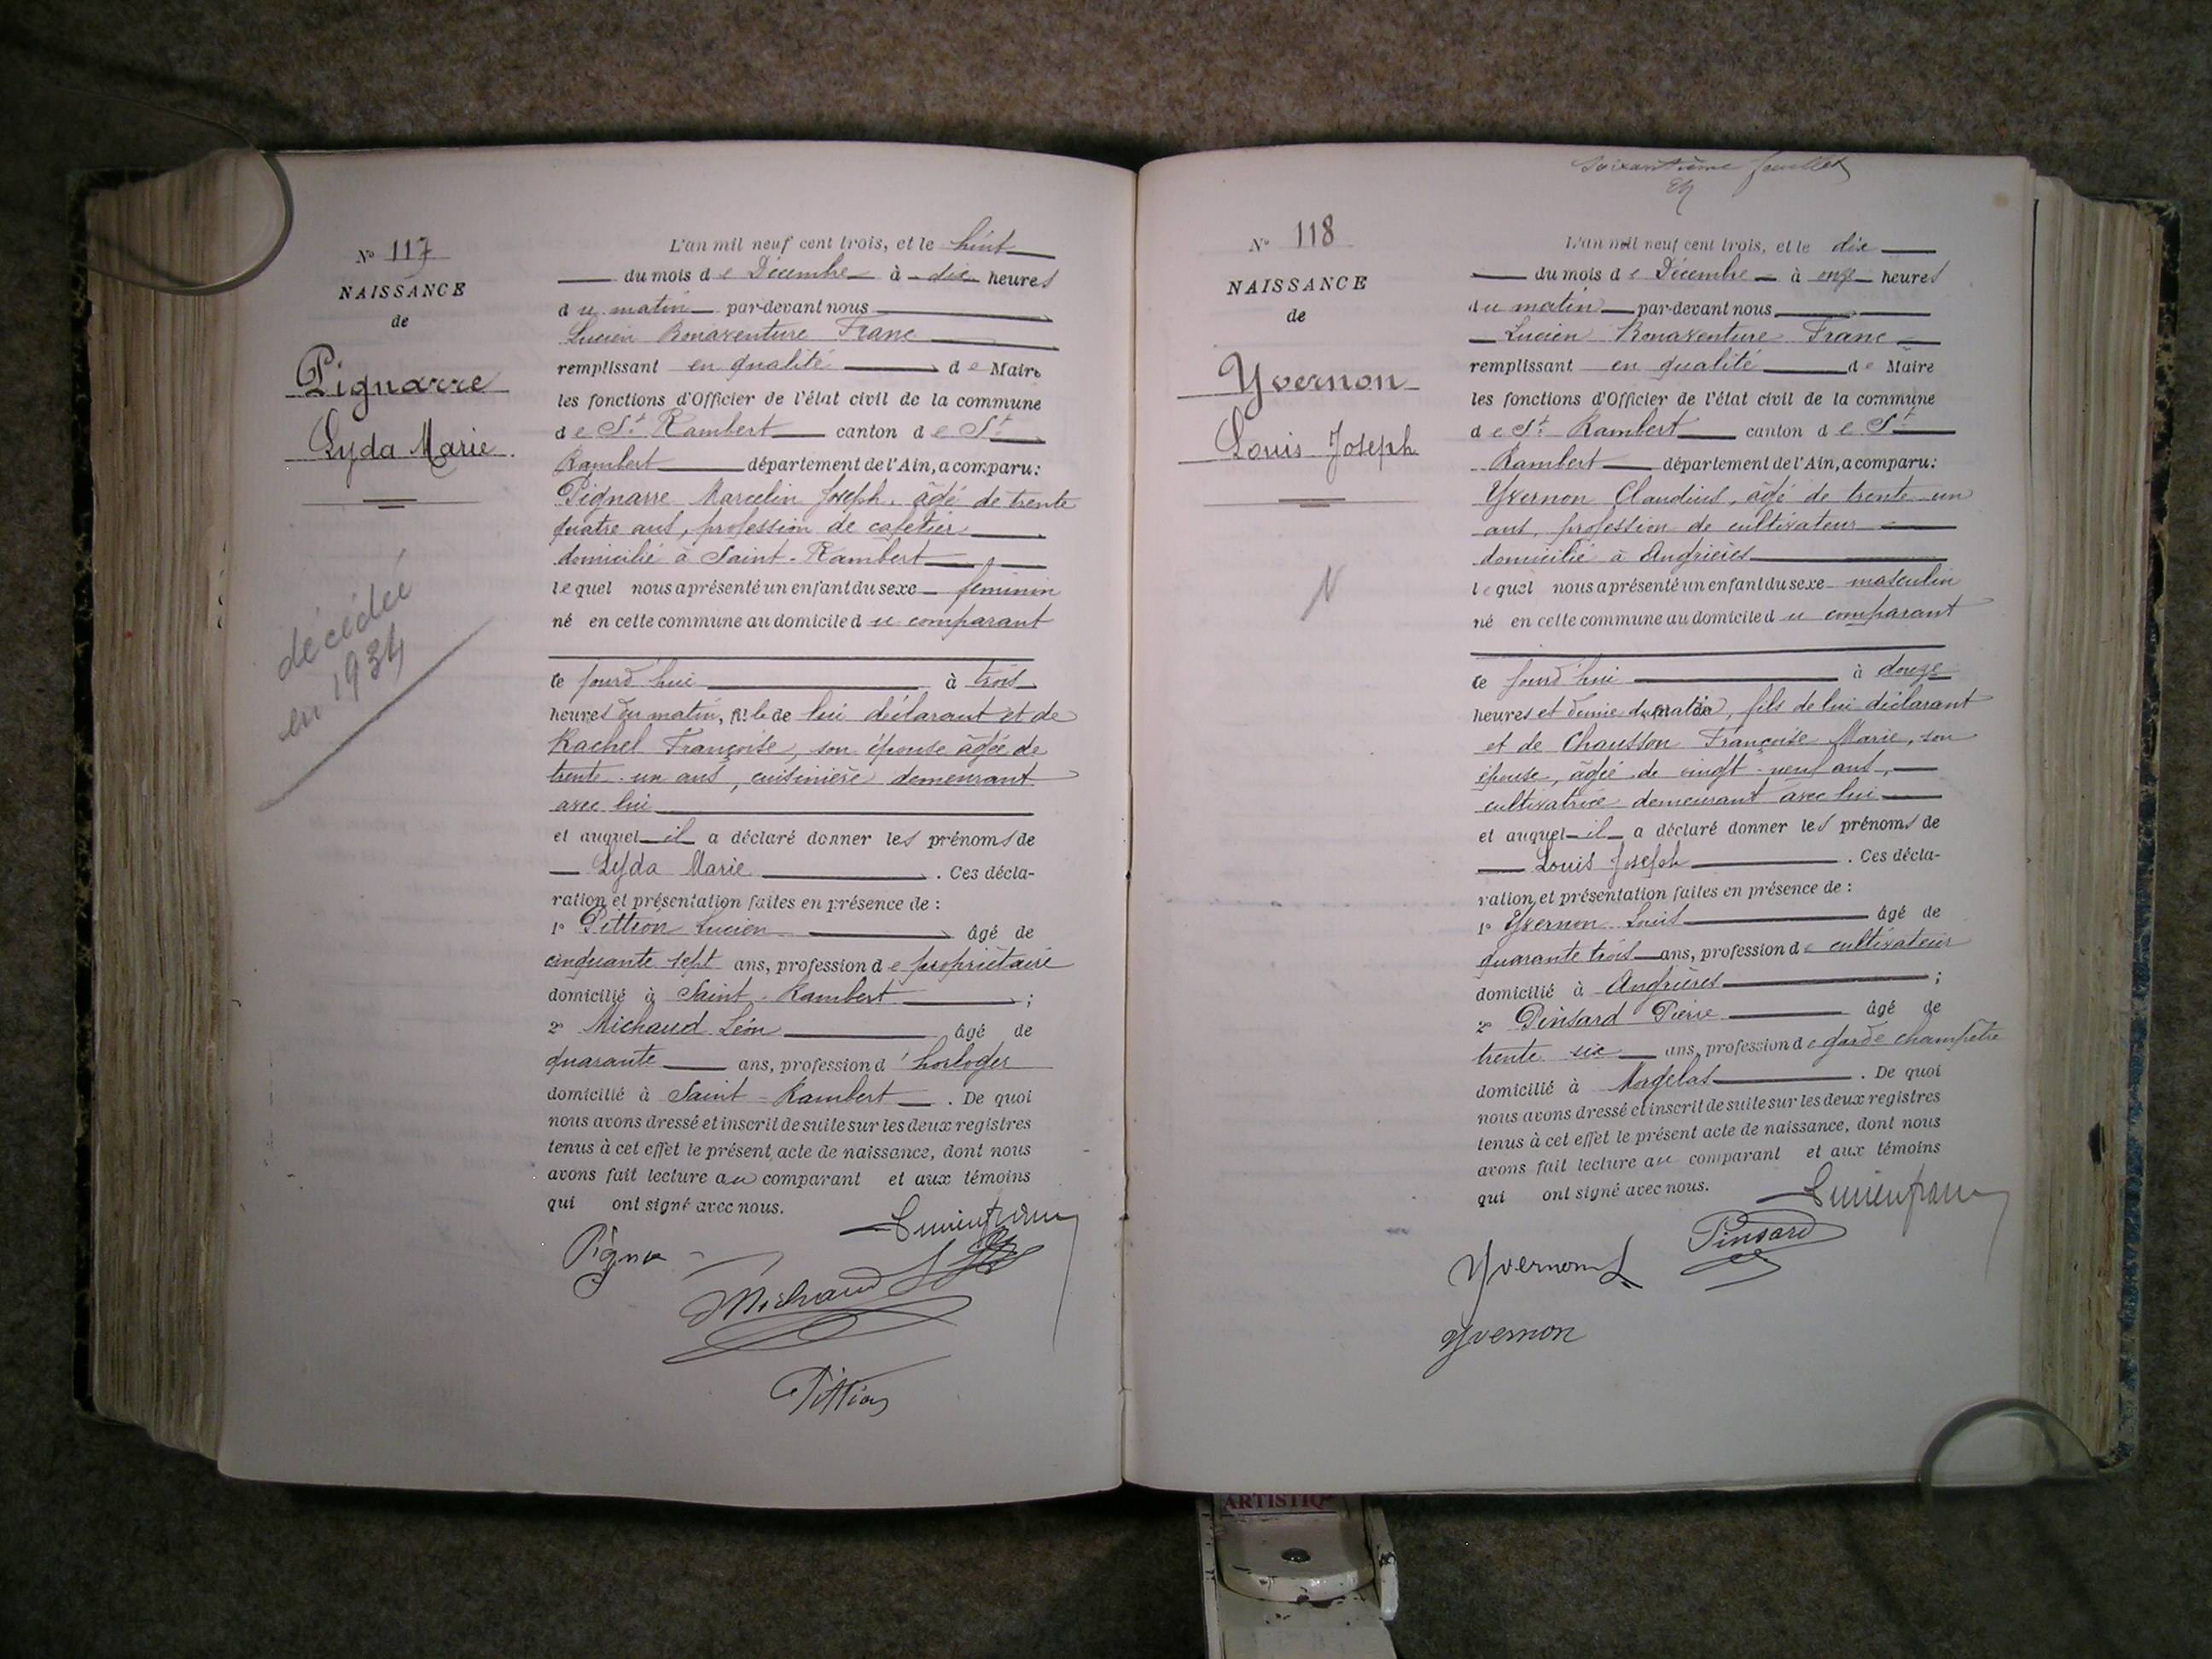 Nº 117
NAISSANCE
de
Pignarre
Lyda Marie
décédée
en 1934
L'an mil neuf cent trois, et le huit
du mois de Décembre à dix heures
du matin par-devant nous
Lucien Bonaventure Franc
remplissant en qualité de Maire
les fonctions d'Officier de l'état civil de la commune
de St Rambert canton de St
Rambert département de l'Ain, a comparu:
Pignarre Marcelin Joseph, âgé de trente
quatre ans, profession de cafetier
domicilié à Saint-Rambert
lequel nous a présenté un enfant du sexe féminin
né en cette commune au domicile du comparant
ce jourd'hui à trois
heures du matin, fille de lui déclarant et de
Rachel Françoise, son épouse âgée de
trente un ans, cuisinière demeurant
avec lui
et auquel il a déclaré donner les prénoms de
Lyda Marie. Ces décla-
ration et présentation faites en présence de :
1º Pittion Lucien âgé de
cinquante sept ans, profession de propriétaire
domicilié à Saint-Rambert ;
2º Michaud Léon âgé de
quarante ans, profession d'horloger
domicilié à Saint-Rambert. De quoi
nous avons dressé et inscrit de suite sur les deux registres
tenus à cet effet le présent acte de naissance, dont nous
avons fait lecture au comparant et aux témoins
qui ont signé avec nous.
Lucien franc
Michaud
Pittion
soixantième feuillet
Nº 118
NAISSANCE
de
Yvernon
Louis Joseph
N
L'an mil neuf cent trois, et le dix
du mois de Décembre à onze heures
du matin par-devant nous
Lucien Bonaventure Franc
remplissant en qualité de Maire
les fonctions d'Officier de l'état civil de la commune
de St Rambert canton de St
Rambert département de l'Ain, a comparu:
Yvernon Claudius, âgé de trente un
ans, profession de cultivateur
domicilié à Angrières
lequel nous a présenté un enfant du sexe masculin
né en cette commune au domicile du comparant
ce jourd'hui à douze
heures et demie du matin, fils de lui déclarant
et de Chausson Françoise Marie, son
épouse, âgée de vingt-neuf ans,
cultivatrice demeurant avec lui
et auquel il a déclaré donner les prénoms de
Louis Joseph. Ces décla-
ration et présentation faites en présence de :
1º Yvernon Louis âgé de
quarante trois ans, profession de cultivateur
domicilié à Angrières ;
2º Pinsard Pierre âgé de
trente six ans, profession de garde champêtre
domicilié à Morgelas. De quoi
nous avons dressé et inscrit de suite sur les deux registres
tenus à cet effet le présent acte de naissance, dont nous
avons fait lecture au comparant et aux témoins
qui ont signé avec nous.
Lucien franc
Pinsard
Yvernon L
Yvernon
ARTISTIQ